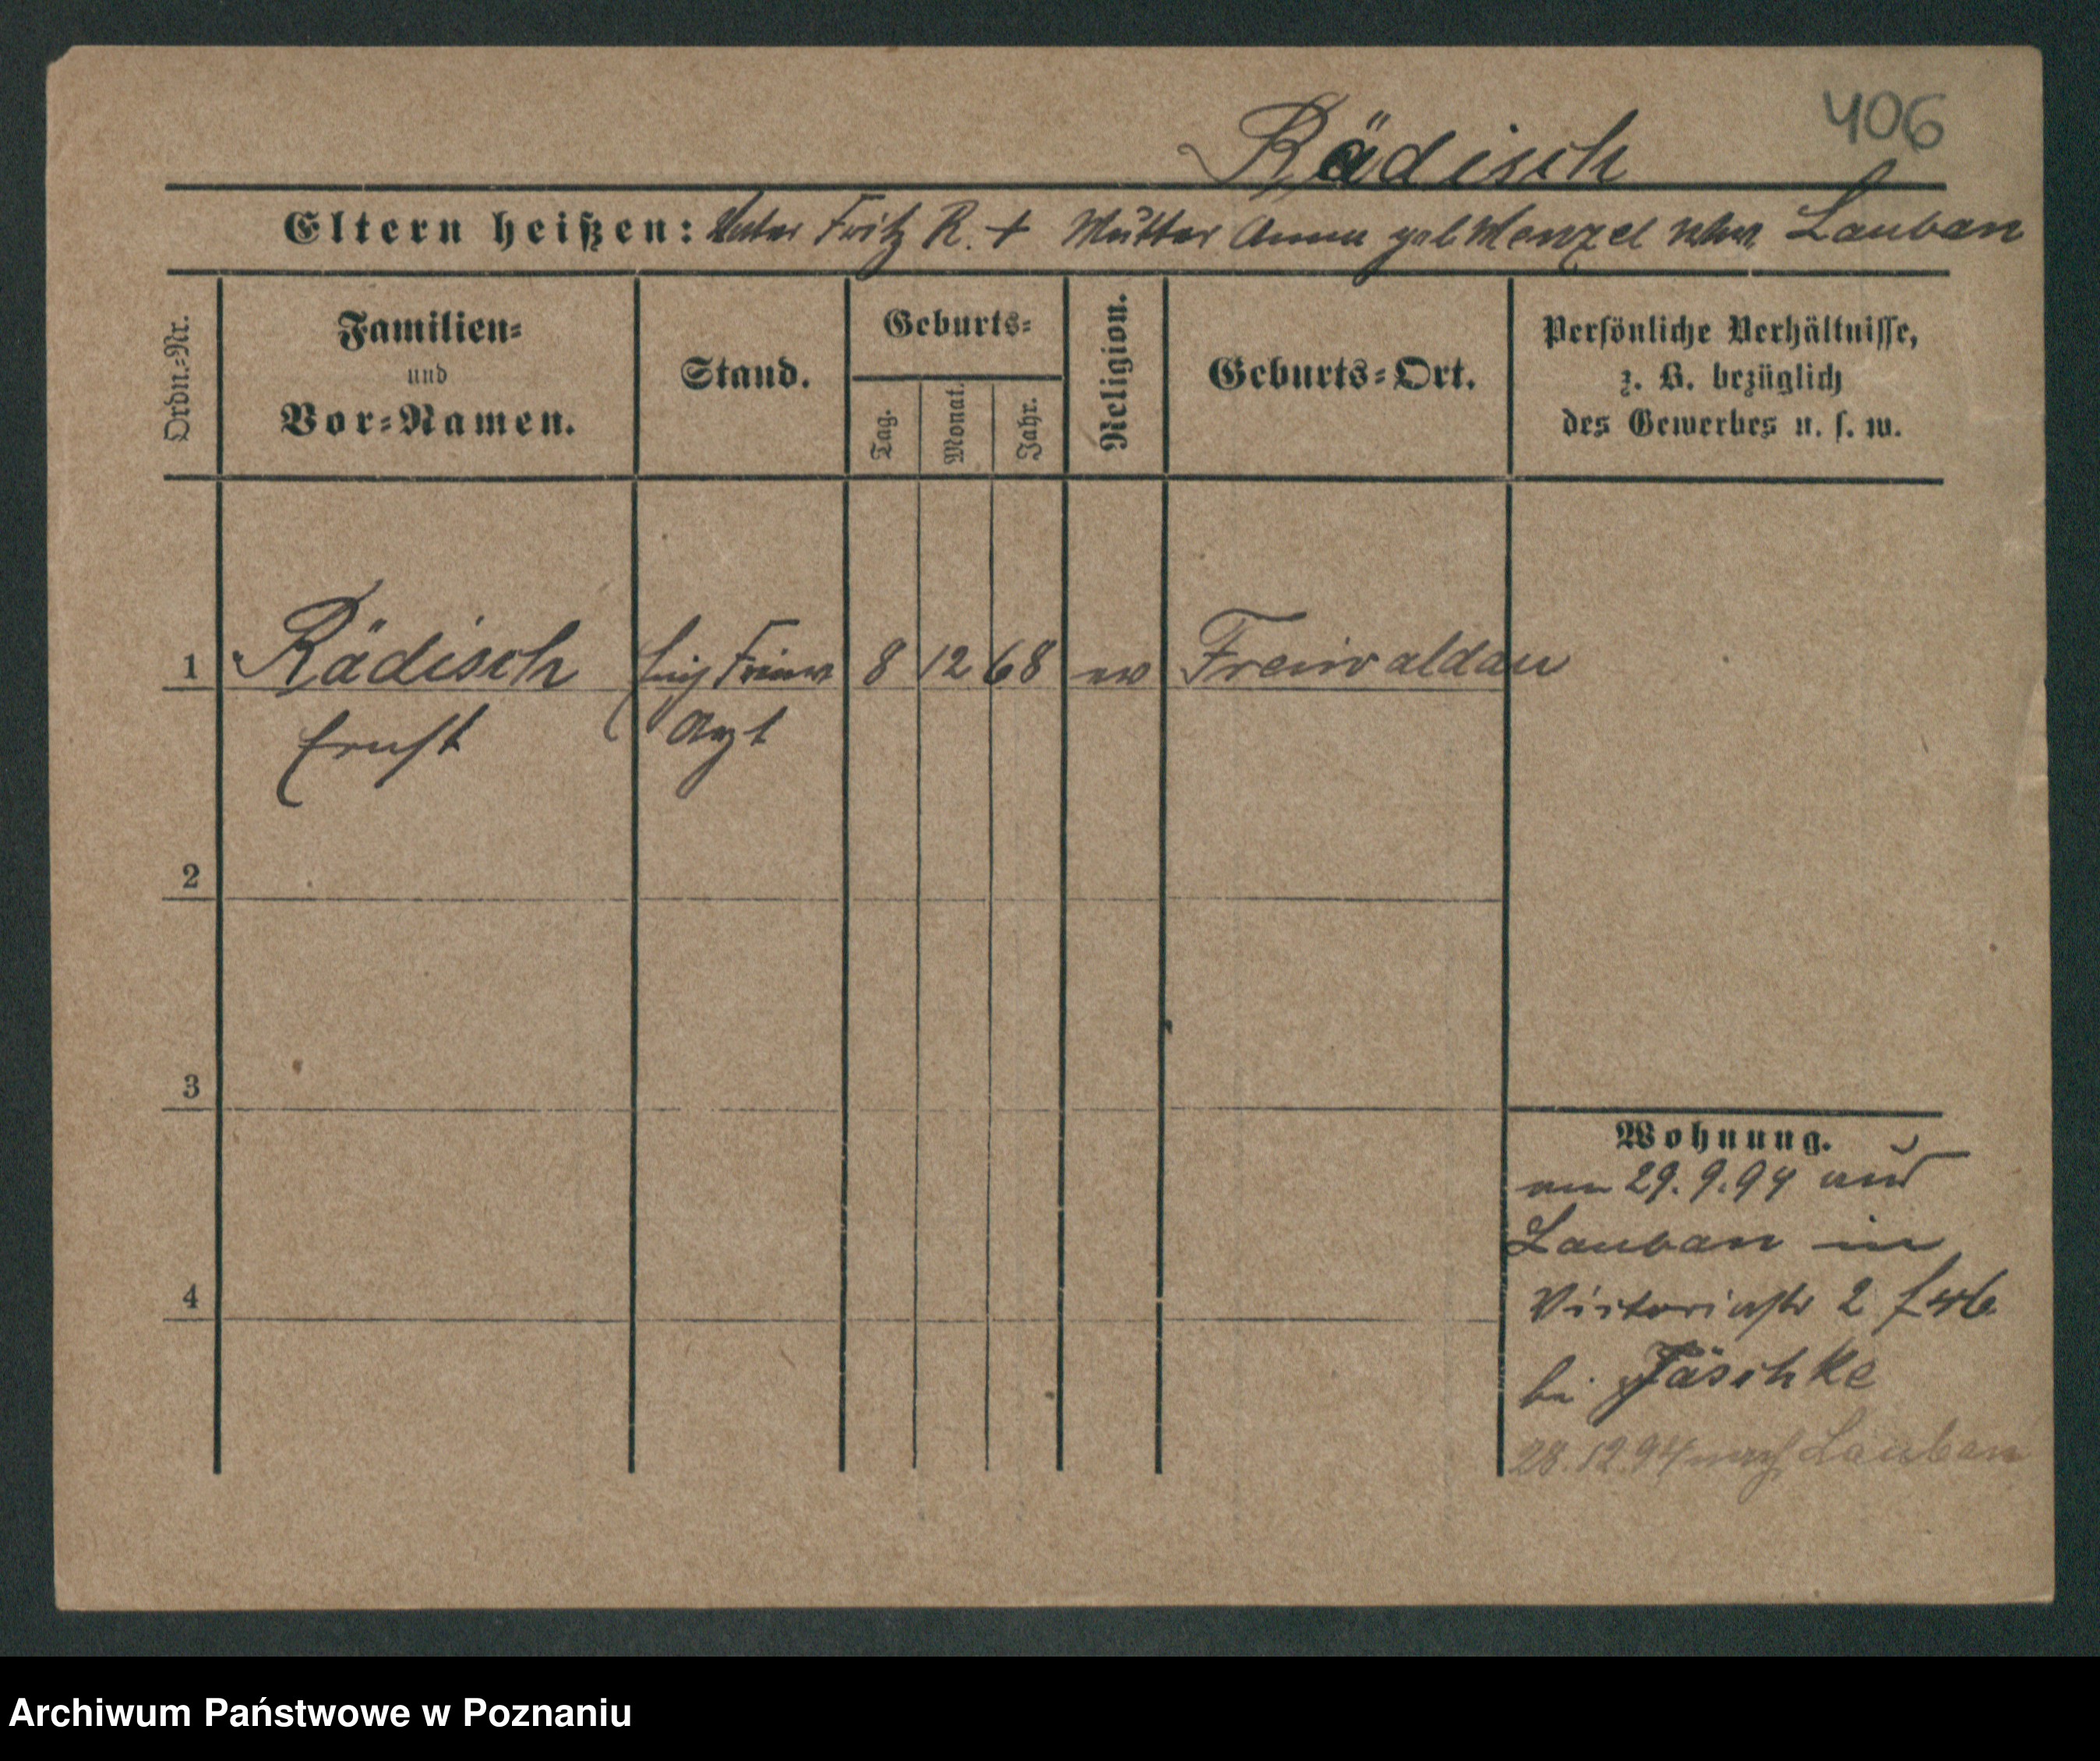 406
Rädisch
Eltern heißen: Vater Fritz R. + Mutter Anna geb Menzel Lauban
Ordn.-Nr.
Familien-
und
Vor-Namen.
Stand.
Geburts-
Tag.
Monat.
Jahr.
Religion.
Geburts-Ort.
Persönliche Verhältnisse,
z. B. bezüglich
des Gewerbes u. s. w.
1 Rädisch Einj Freiw 8 12 68 ev Freiwaldau
Ernst Arzt
2
3
4
Wohnung.
am 29.9.94 aus
Lauban in
Victoriastr 2
bei Jäschke
28.12.94 nach Lauban
Archiwum Państwowe w Poznaniu